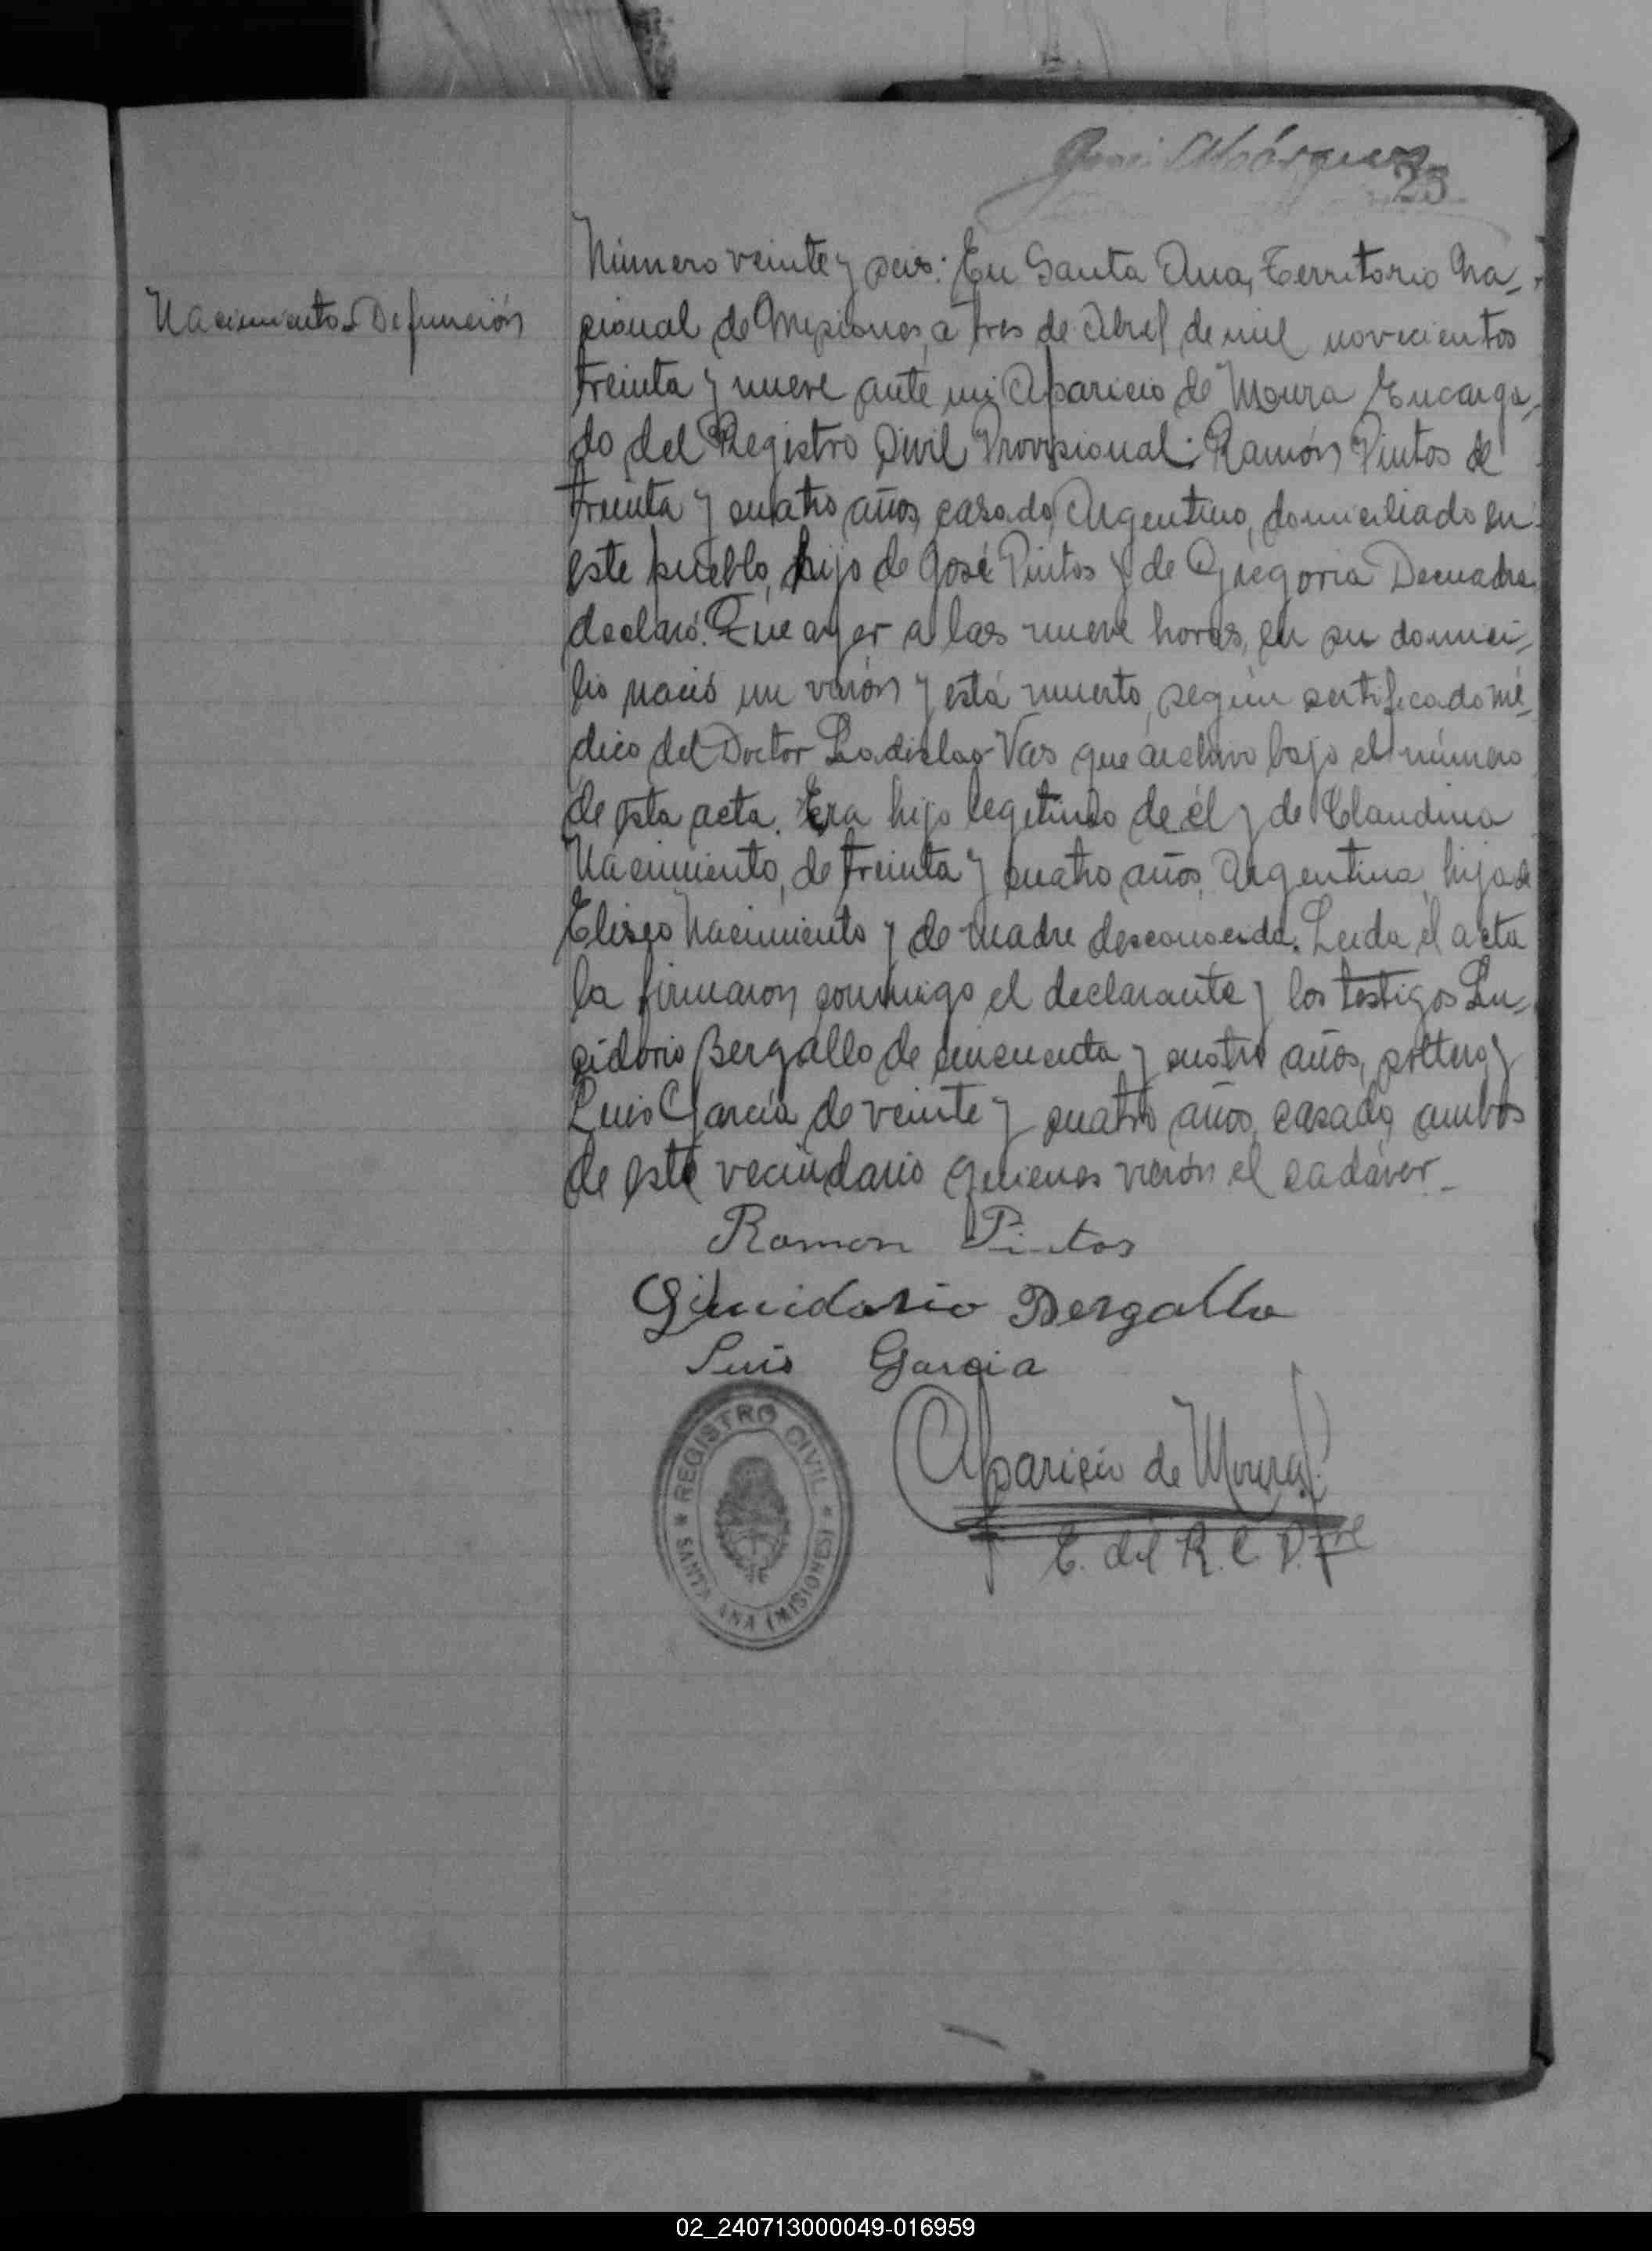 José Márquez
25
Nacimiento-Defunción
Número veinte y seis: En Santa Ana, Territorio Na-
cional de Misiones, a tres de Abril de mil novecientos
treinta y nueve ante mi Aparicio de Moura Encarga-
do del Registro Civil Provisional: Ramón Pintos de
treinta y cuatro años, casado, Argentino, domiciliado en
este pueblo, hijo de José Pintos y de Gregoria Decuadra
declaró: Que ayer a las nueve horas, en su domici-
lio nació un varón y está muerto, según certificado mé-
dico del Doctor Ladislao Vas que archivo bajo el número
de esta acta. Era hijo legitimo de él y de Claudina
Nacimiento, de treinta y cuatro años, Argentina, hija de
Eliseo Nacimiento y de madre desconocida. Leida el acta
la firmaron conmigo el declarante y los testigos Lu-
cidorio Bergallo de cincuenta y cuatro años, soltero y
Luis García de veinte y cuatro años, casado, ambos
de este vecindario quienes vieron el cadáver.-
Ramon Pintos
Bergallo
Luis Garcia
Aparicio de Moura
E. del R. C. P.
REGISTRO CIVIL
* SANTA ANA (MISIONES) *
02_240713000049-016959